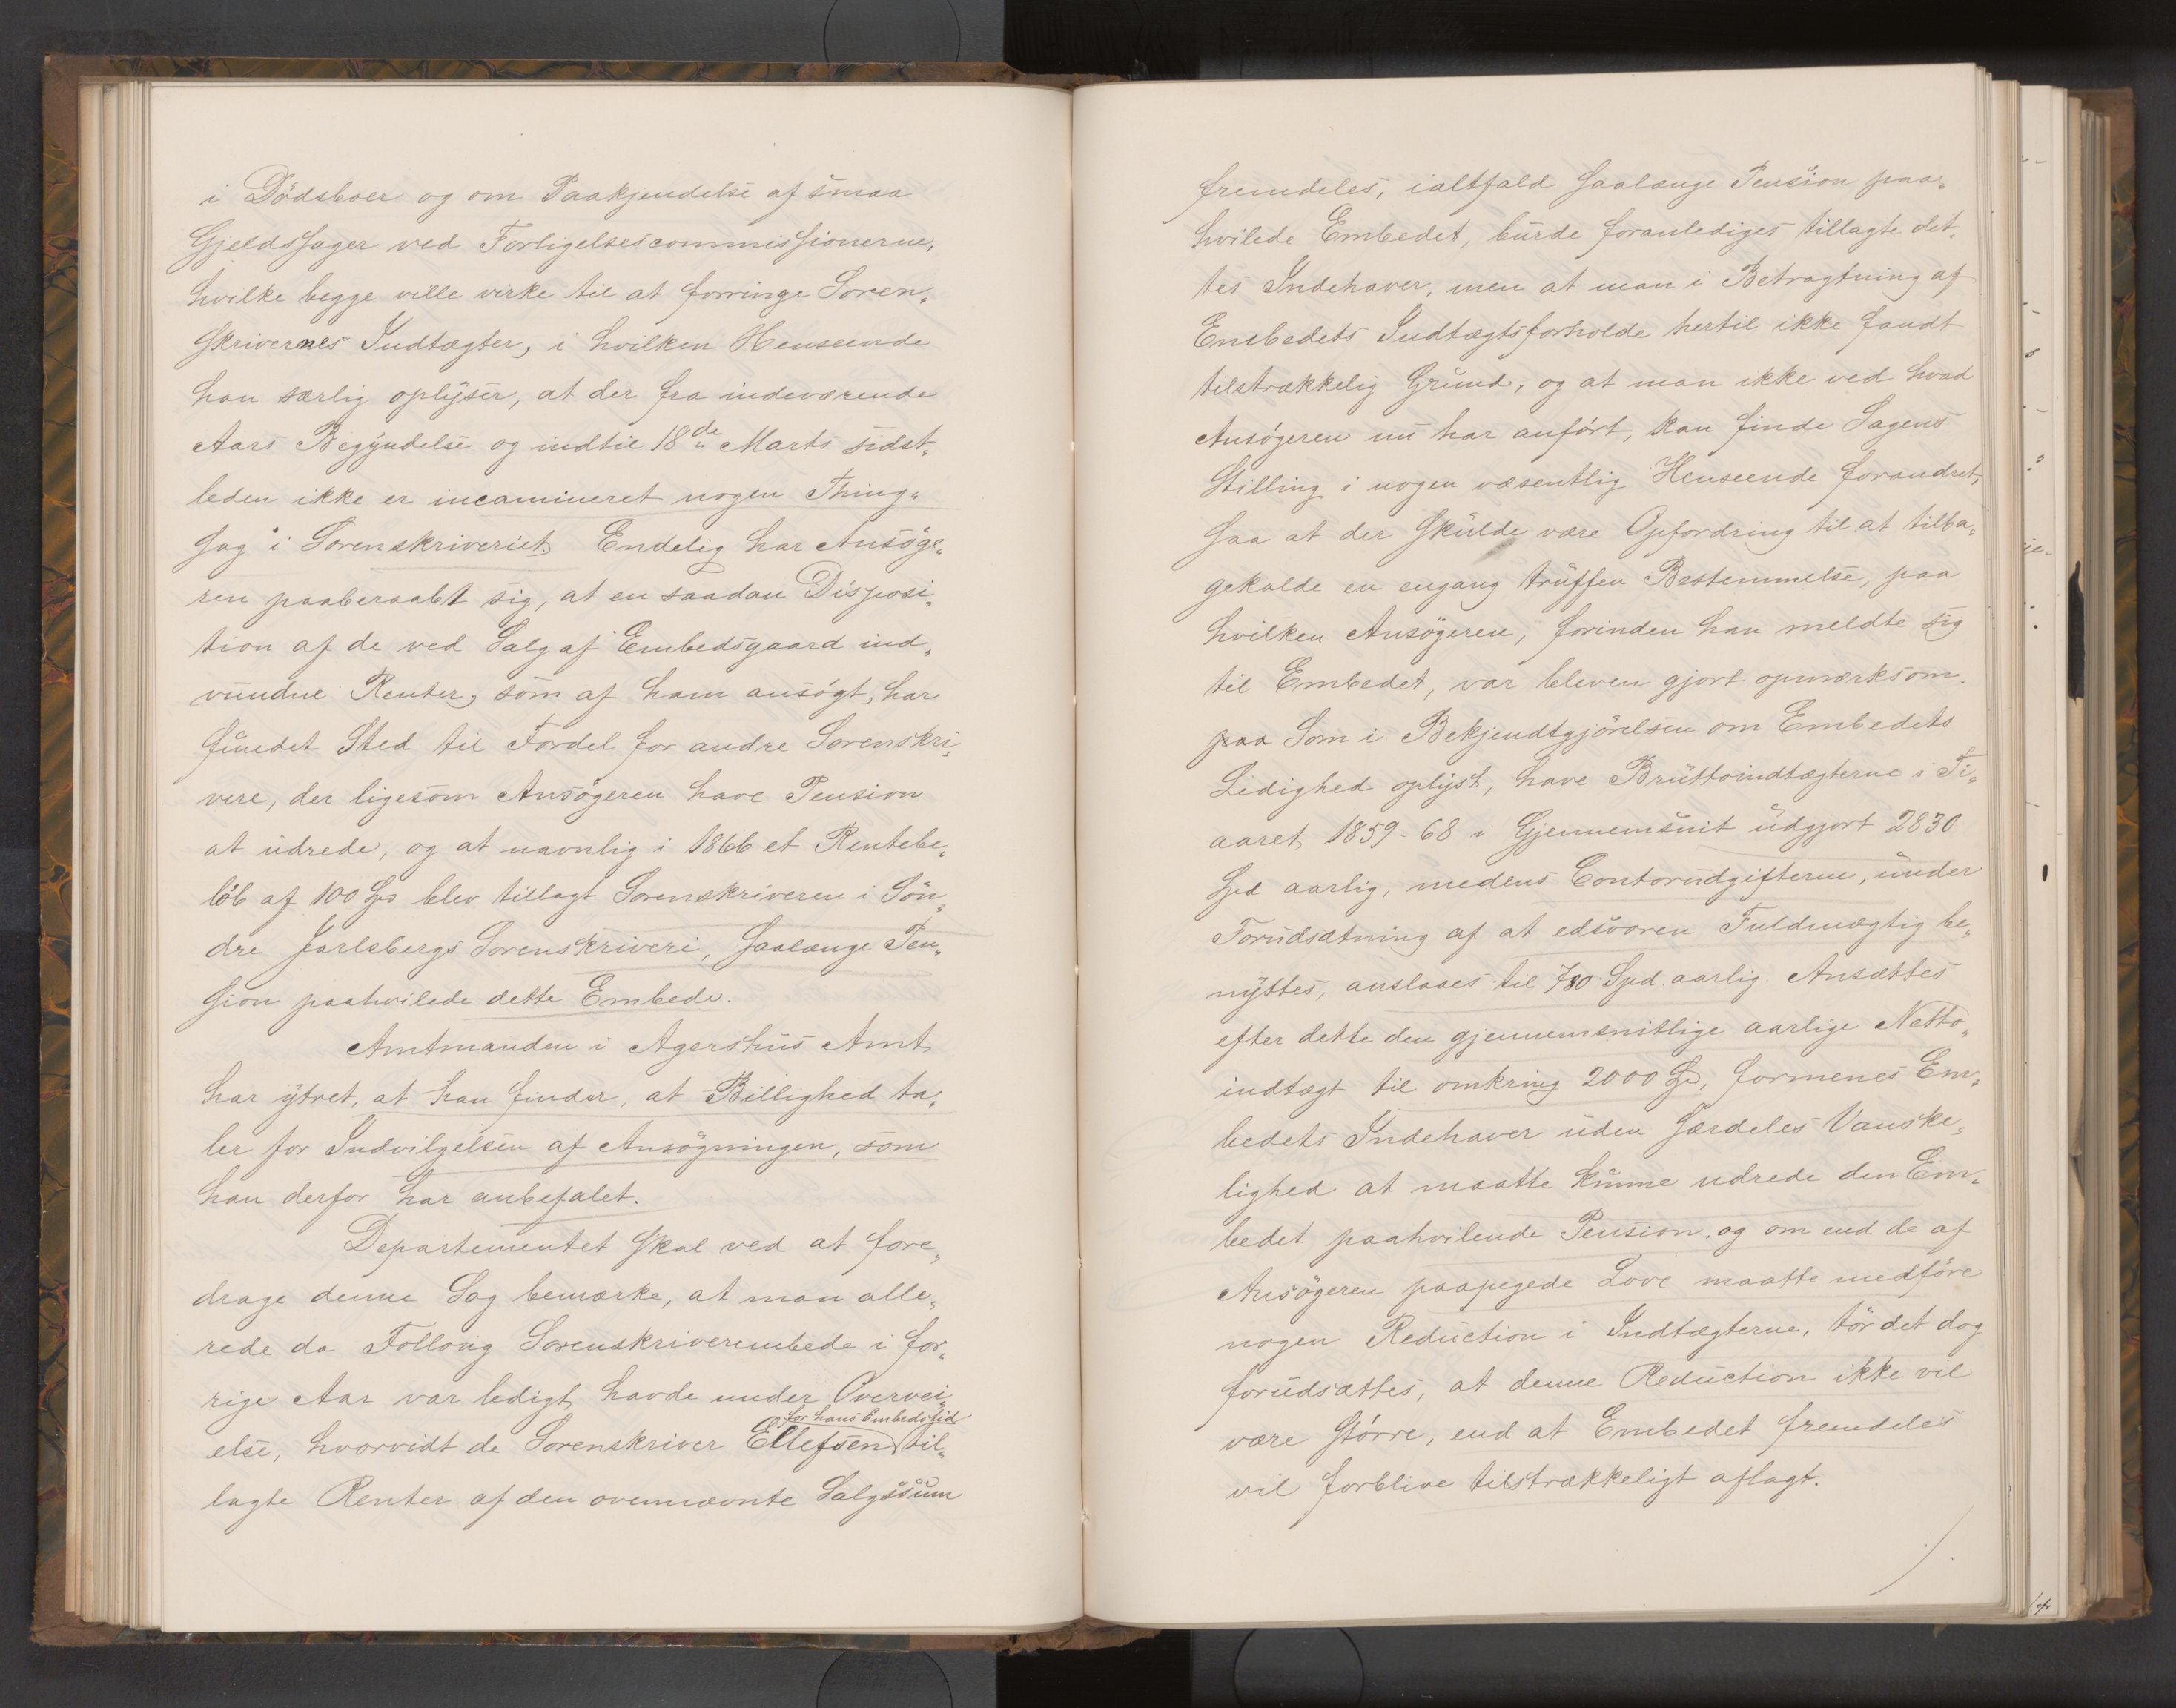 i Dödsboer og om Paakjendelse af smaa
Gjeldssager ved Forligelsescommissionerne,
hvilke begge ville virke til at forringe Soren„
skrivernes Indtægter, i hvilken Henseende
han særlig oplyser, at der fra indeværende
Aars Begyndelse og indtil 18de Marts sidst„
leden ikke er incamineret nogen Thing„
sag i Sorenskriveriet. Endelig har Ansöge„
ren paaberaabt sig, at en saadan Disposi„
tion af de ved Salg af Embedsgaard ind„
vundne Renter, som af ham ansögt, har
fundet Sted til Fordel for andre Sorenskri„
vere, der ligesom Ansögeren have Pension
at udrede, og at navnlig i 1866 et Rentebe„
löb af 100 Spd blev tillagt Sorenskriveren i Sön„
dre Jarlsbergs Sorenskriveri, saalænge Pen„
sion paahvilede dette Embede.
Amtmanden i Agershus Amt
har ytret, at han finder, at Billighed ta„
ler for Indvilgelsen af Ansögningen, som
han derfor har anbefalet.
Departementet skal ved at fore„
drage denne Sag bemærke, at man alle„
rede da Follong Sorenskriverembede i for„
rige Aar var ledigt, havde under Overvei„
for hans Embedstid
else, hvorvidt de Sorenskriver Ellefsen til„
lagte Renter af den ovennævnte Salgssum
fremdeles, ialtfald saalænge Pension paa„
hvilede Embedet, burde foranlediges tillagte det„
tes Indehaver, men at man i Betragtning af
Embedets Indtægtsforholde hertil ikke fandt
tilstrækkelig Grund, og at man ikke ved hvad
Ansögeren nu har anfört, kan finde Sagens
Stilling i nogen væsentlig Henseende forandret,
saa at der skulde være Opfordring til at tilba„
gekalde en engang truffen Bestemmelse, paa
hvilken Ansögeren, forinden han meldte sig
til Embedet, var bleven gjort opmærksom.
paa Som i Bekjendtgjörelsen om Embedets
Ledighed oplyst, have Bruttoindtægterne i Ti„
aaret 1859-68 i Gjennemsnit udgjort 2830
Spd aarlig, medens Contorudgifterne, under
Forudsætning af at edsvoren Fuldmægtig be„
nyttes, anslaaes til 780 Spd. aarlig. Ansættes
efter dette den gjennemsnitlige aarlige Netto„
indtægt til omkring 2000 Spd, formenes Em„
bedets Indehaver uden særdeles Vanske„
lighed at maatte kunne udrede den Em„
bedet paahvilende Pension, og om end de af
Ansögeren paapegede Love maatte medföre
nogen Reduction i Indtægterne, tör det dog
forudsættes, at denne Reduction ikke vil
være större, end at Embedet fremdeles
vil forblive tilstrækkeligt aflagt.
./.